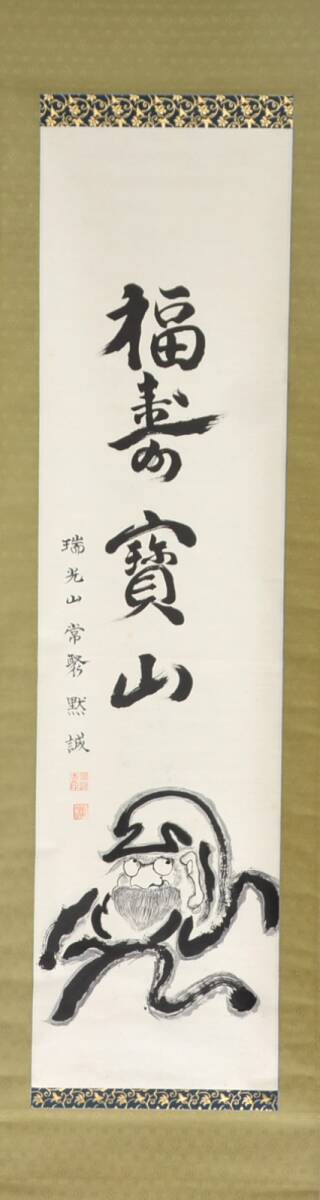 福壽寶山
瑞光山常聚黙誠